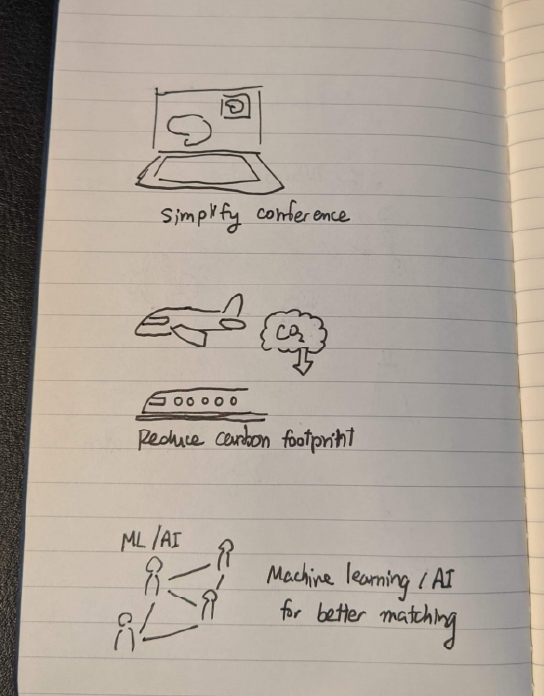 Simplify conference
CO₂
Reduce carbon footprint
ML/AI
Machine learning / AI
for better matching